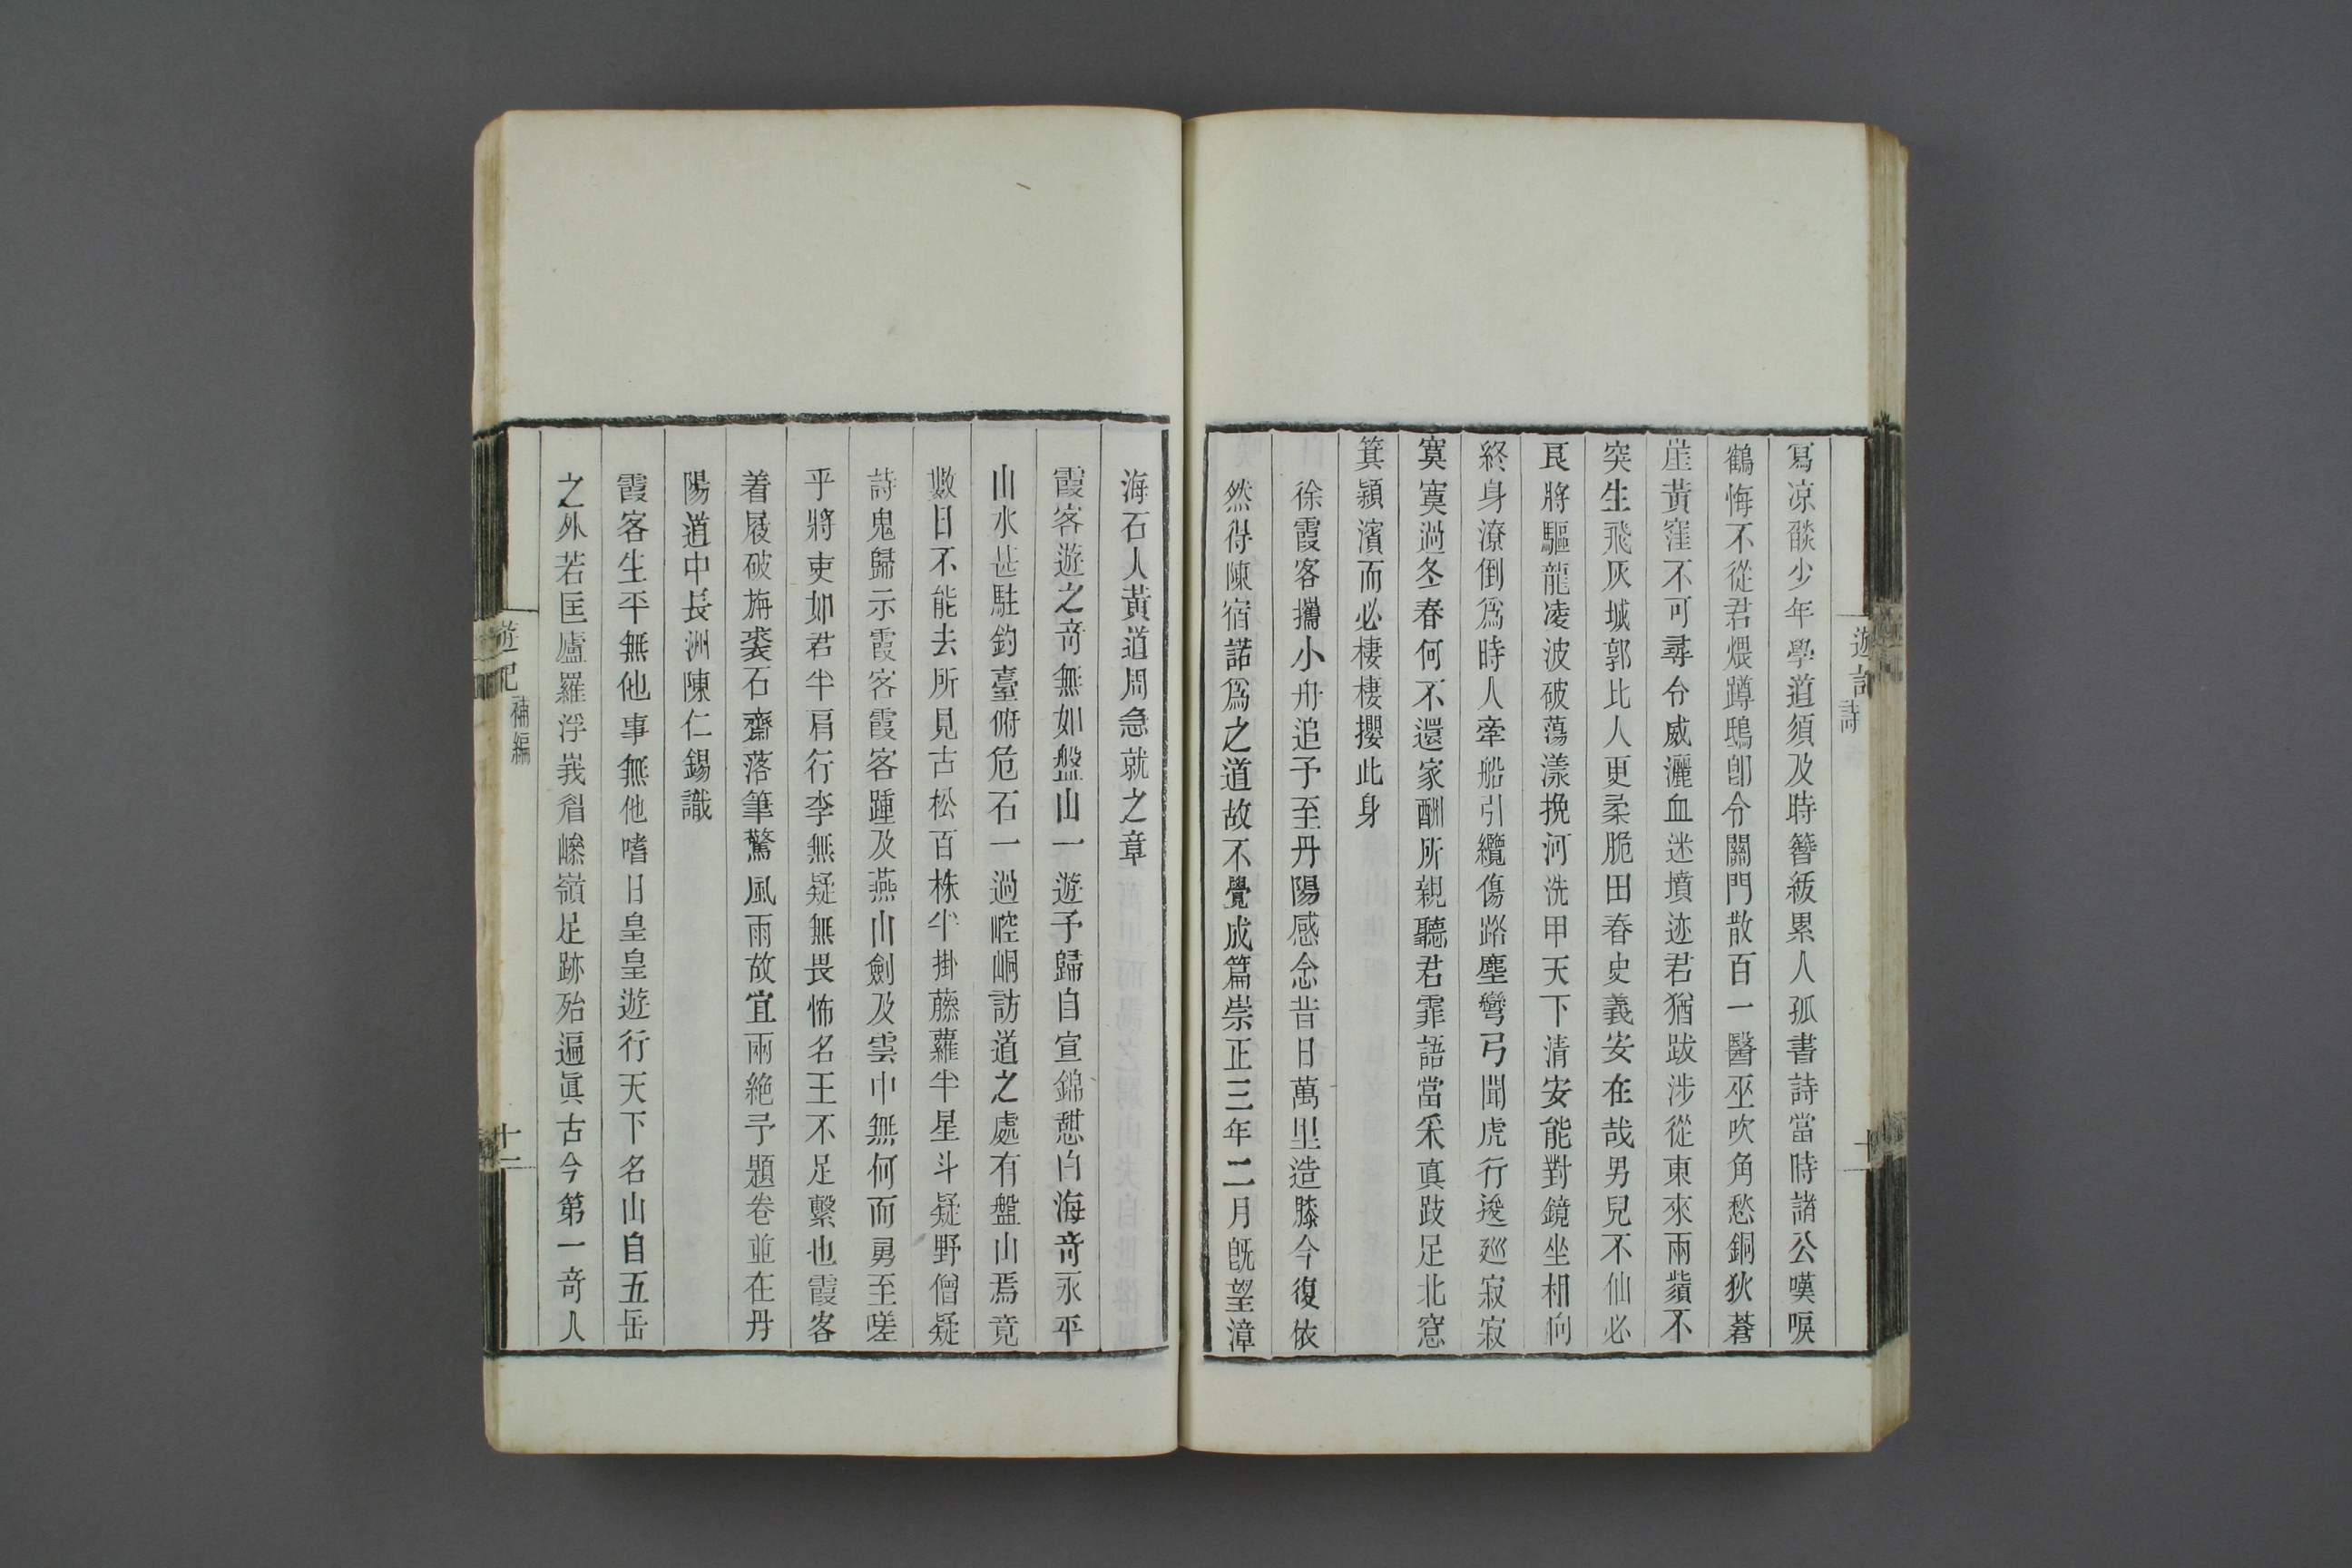 遊記
詩
寫凉燄少年學道須及時簪紱累人孤書詩當時諸公嘆唳
鶴悔不從君煨蹲鴟卽今關門散百一醫巫吹角愁銅狄蒼
崖黃窪不可尋令威灑血迷墳迹君猶跋涉從東來兩鬚不
突生飛灰城郭比人更柔脆田春史義安在哉男兒不仙必
良將驅龍凌波破蕩漾挽河洗甲天下清安能對鏡坐相向
終身潦倒爲時人牽船引纜傷路塵彎弓聞虎行逡廵寂寂
寞寞過冬春何不還家酬所親聽君霏語當采眞跂足北窓
箕潁濱而必棲棲攖此身
徐霞客攜小舟追予至丹陽感念昔日萬里造膝今復依
然得陳宿諾爲之道故不覺成篇崇正三年二月旣望漳
海石人黃道周急就之章
霞客遊之奇無如盤山一遊予歸自宣錦憇白海奇永平
山水甚駐釣臺俯危石一過崆峒訪道之處有盤山焉竟
數日不能去所見古松百株半掛藤蘿半星斗疑野僧疑
詩鬼歸示霞客霞客踵及燕山劍及雲中無何而勇至嗟
乎將吏如君半肩行李無疑無畏怖名王不足繫也霞客
着屐破旃裘石齋落筆驚風雨故宜兩絶予題卷並在丹
陽道中長洲陳仁錫識
霞客生平無他事無他嗜日皇皇遊行天下名山自五岳
之外若匡廬羅浮峩眉嵾嶺足跡殆遍眞古今第一奇人
遊記
補編
十一